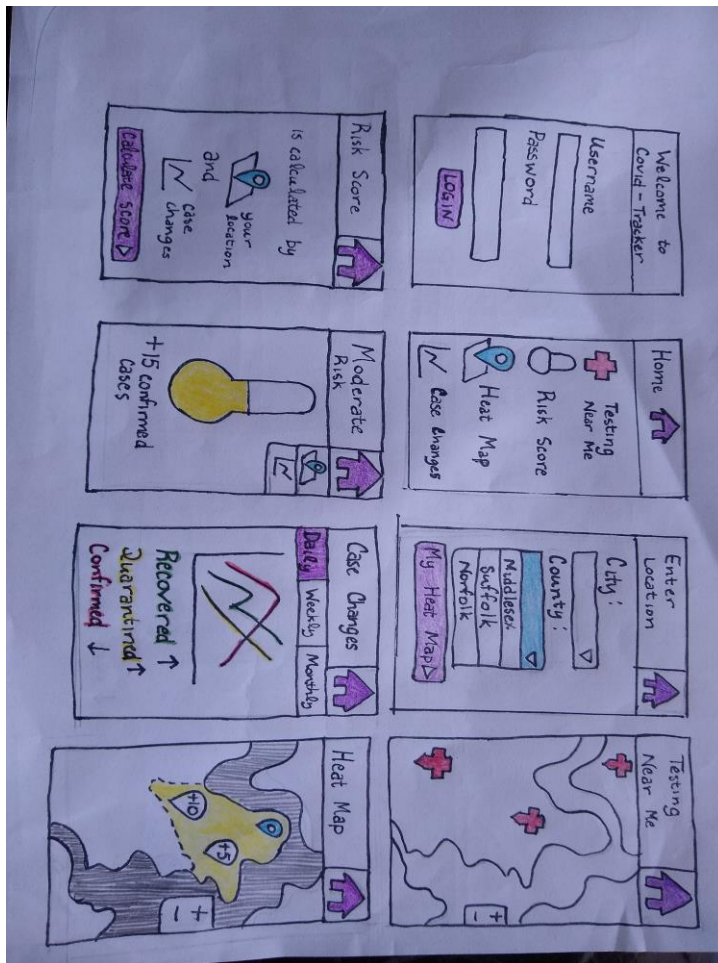 Welcome to
Covid-Tracker
Username
Password
LOGIN
Home
Testing
Near Me
Risk Score
Heat Map
Case Changes
Enter
Location
City:
County:
Middlesex
Suffolk
Norfolk
My Heat Map
Testing
Near Me
+
-
Risk Score
is calculated by
your
location
and
case
changes
Calculate score
Moderate
Risk
+15 confirmed
cases
Case Changes
Daily Weekly Monthly
Recovered ↑
Quarantined ↑
Confirmed ↓
Heat Map
+5
+10
+
-